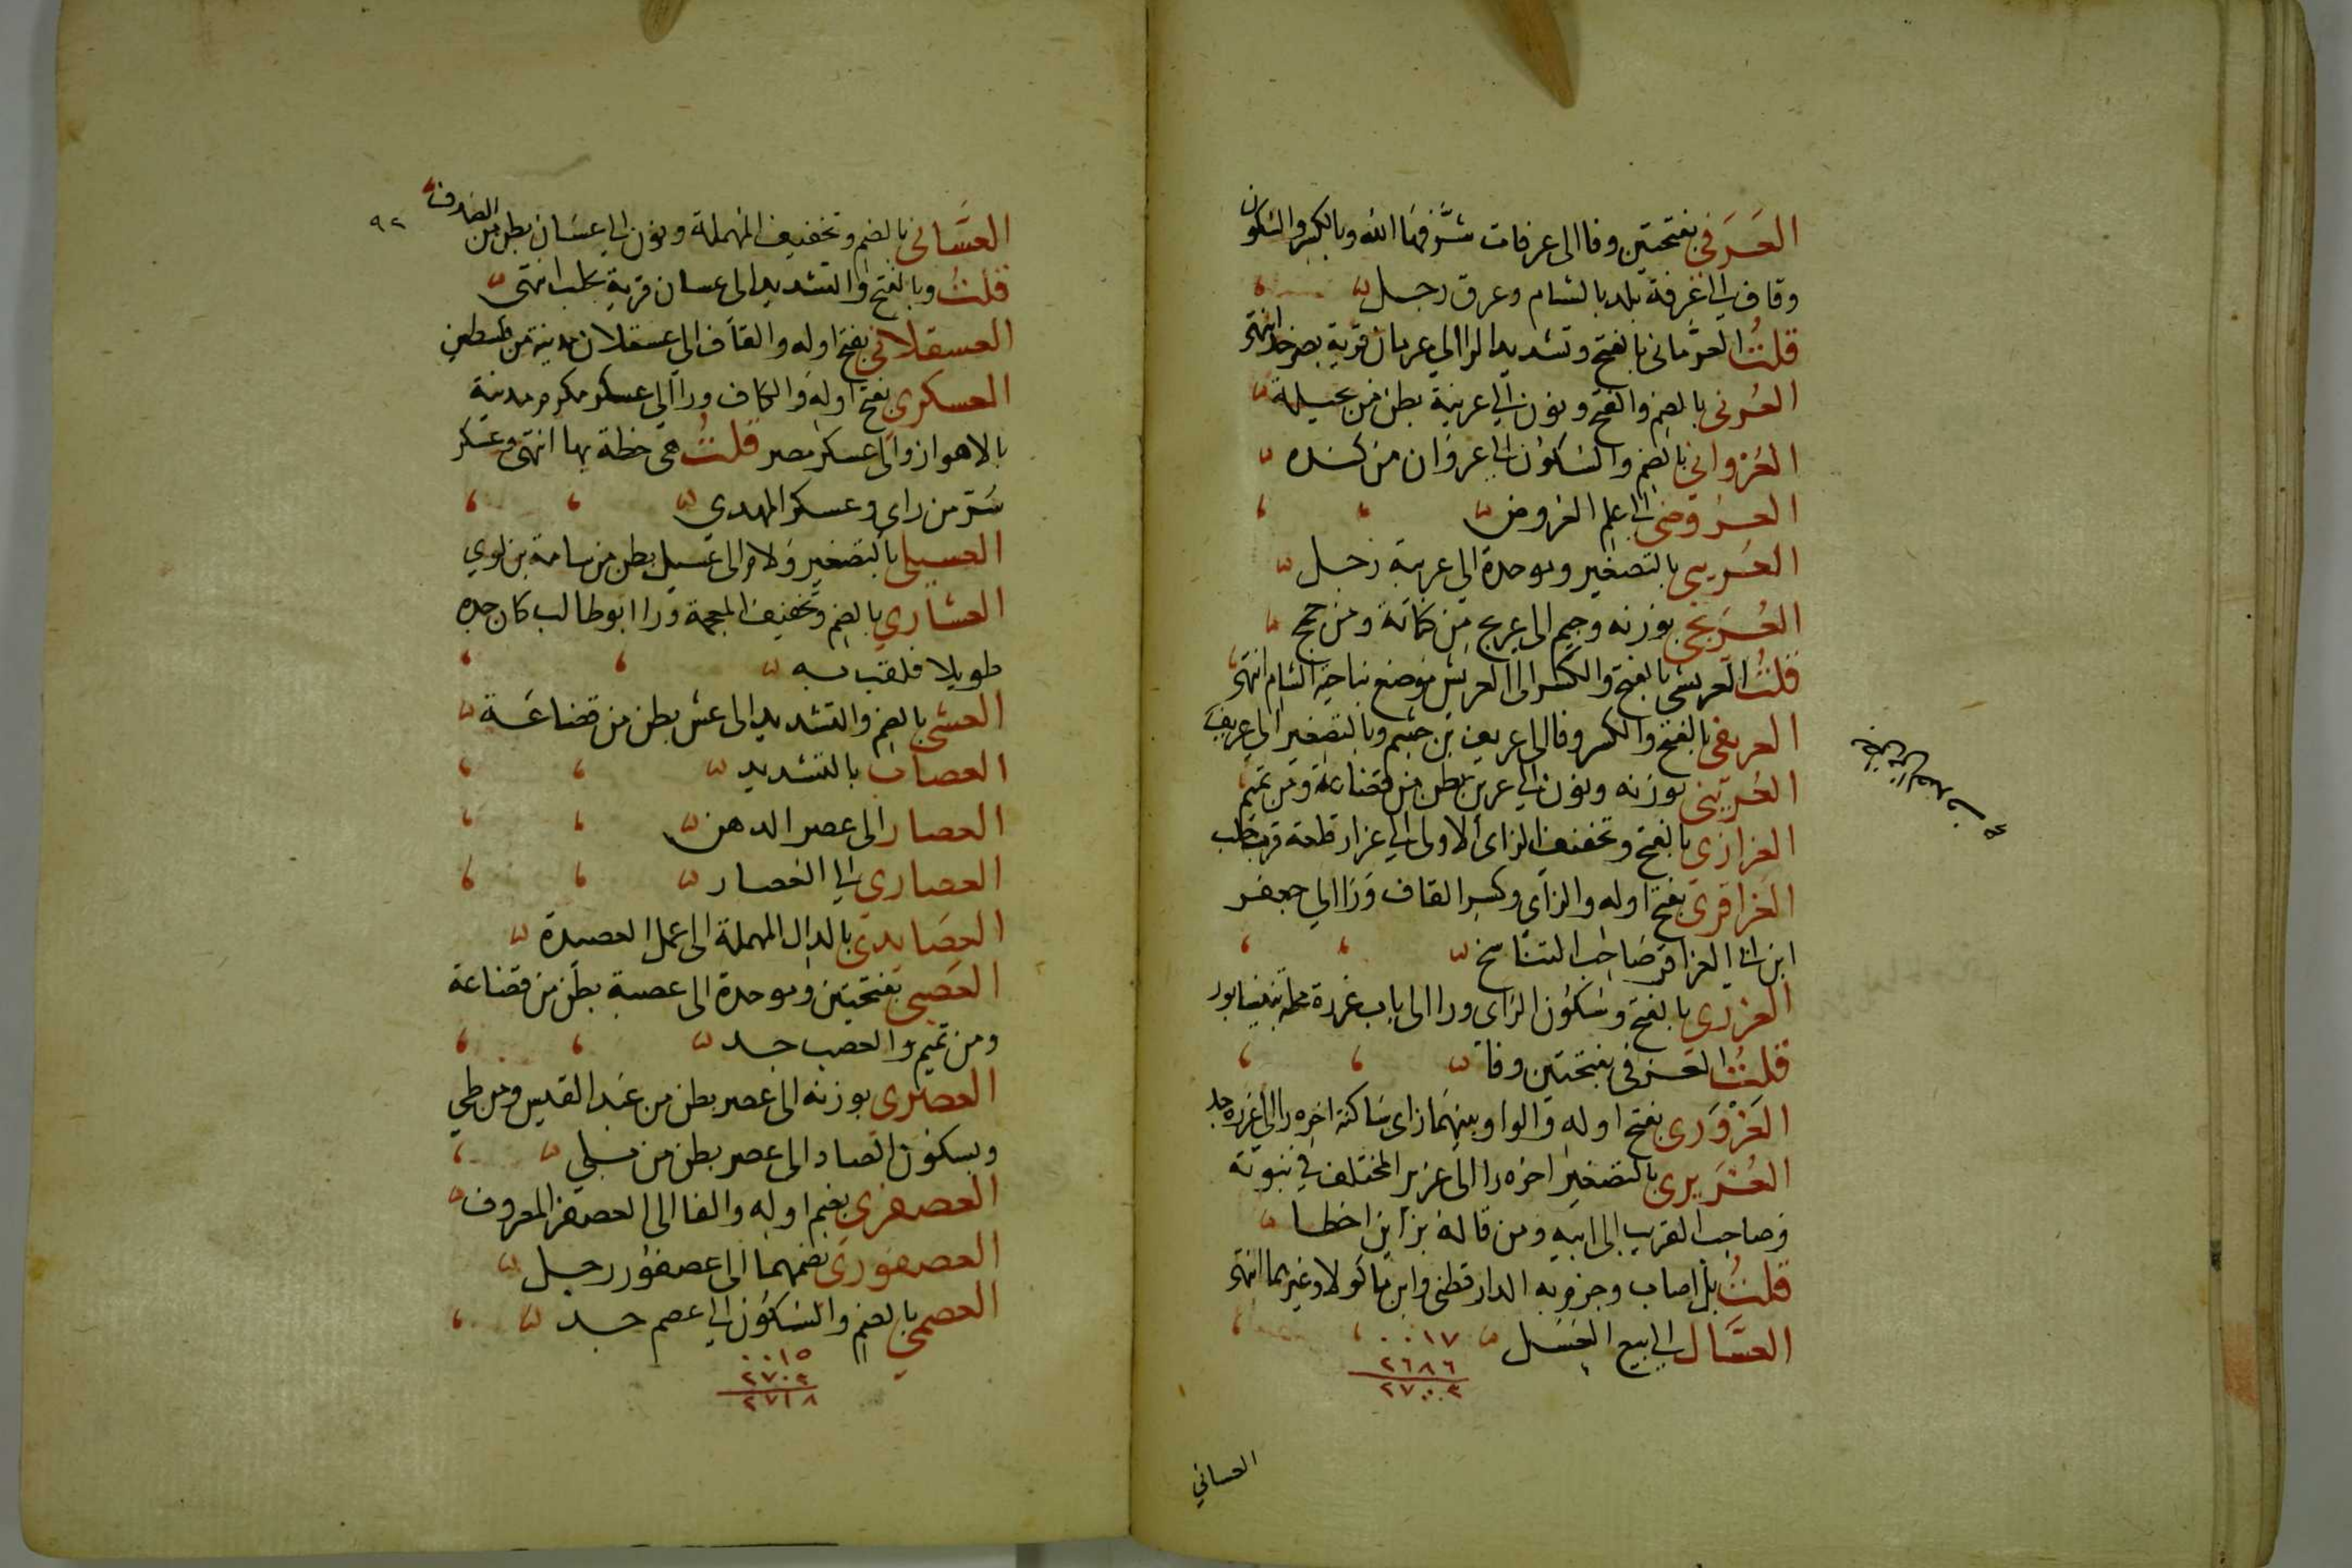 العَرَفى بفتحتين وفا الى عرفات شرَّفها الله وبالكسر والسكون
وقاف الى عرقة بلد بالشام وعرق رجل
قلتُ العرَّمانى بالفتح وتشديد الرا الى عرمان قرية بصرخد انتهى
العُرنى بالضم والفتح ونون الى عرينة بطن من بجيلة
العُرْوانى بالضم والسكون الى عروان من كنده
العروضى الى علم العروض
العُريبى بالتصغير وموحدة الى عريبة رجل
العُرَيجى بوزنه وجيم الى عريج من كنانة ومن
قلتُ العريشى بالفتح والكسر الى العريش موضع بناحية الشام انتهى
العريفى بالفتح والكسر وفا الى عريف بن جشم وبالتصغير الى عريف
العُرينى بوزنه ونون الى عرين بطن من قضاعة ومن تميم
العزازى بالفتح وتخفيف الزاى الاولى الى عزاز قلعة قرب حلب
العزاقرى بفتح اوله والزاى وكسر القاف ورا الى جعفر
ابن ابى العزاقر صاحب التناسخ
العزرى بالفتح وسكون الزاى ورا الى باب عزرة محلة بنيسابور
قلتُ العزفى بفتحتين وفا
العَزْوَرى بفتح اوله والواو بينهما زاى ساكنة اخره را الى عزره جد
العُزَيرى بالتصغير اخره را الى عزير المختلف فى نبوته
وصاحب الغريب الى ابيه ومن قاله بزاين اخطا
قلتُ بل اصاب وجزم به الدارقطنى وابن ماكولا وغيرهما انتهى
العسَّال الى بيع العسل ٠٠١٧
٢٦٨٦
٢٧٠٣
العسانى
٩٢
العسَّانى بالضم وتخفيف المهملة ونون الى عسان بطن من الصدف
قلتُ وبالفتح والتشديد الى عسان قرية بحلب انتهى
العسقلانى بفتح اوله والقاف الى عسقلان مدينة من فلسطين
العسكرى بفتح اوله والكاف ورا الى عسكر مكرم مدينة
بالاهواز والى عسكر مصر قلتُ هى خطة بها انتهى وعسكر
سُرّ من راى وعسكر المهدى
العسيلى بالتصغير ولام الى عسيل بطن من سامة بن لوي
العشارى بالضم وتخفيف المعجمة ورا ابو طالب كان جده
طويلا فلقب به
العشى بالضم والتشديد الى عش بطن من قضاعة
العصاب بالتشديد
العصار الى عصر الدهن
العصارى الى العصار
العصايدى بالدال المهملة الى عمل العصيدة
العَصَبى بفتحتين وموحدة الى عصبة بطن من قضاعة
ومن تميم والعصب جد
العصَرى بوزنه الى عصر بطن من عبد القيس ومن طى
وبسكون الصاد الى عصر بطن من بلى
العصفرى بضم اوله والفا الى العصفر المعروف
العصفورى بضمهما الى عصفور رجل
العصمى بالضم والسكون الى عصم جد
٠٠١٥
٢٧٠٣
٢٧١٨